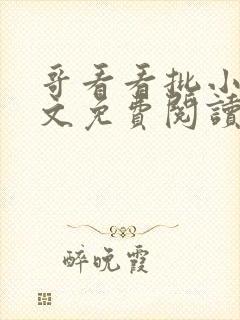 哥看看批小
文免費閱讀
醉晚霞